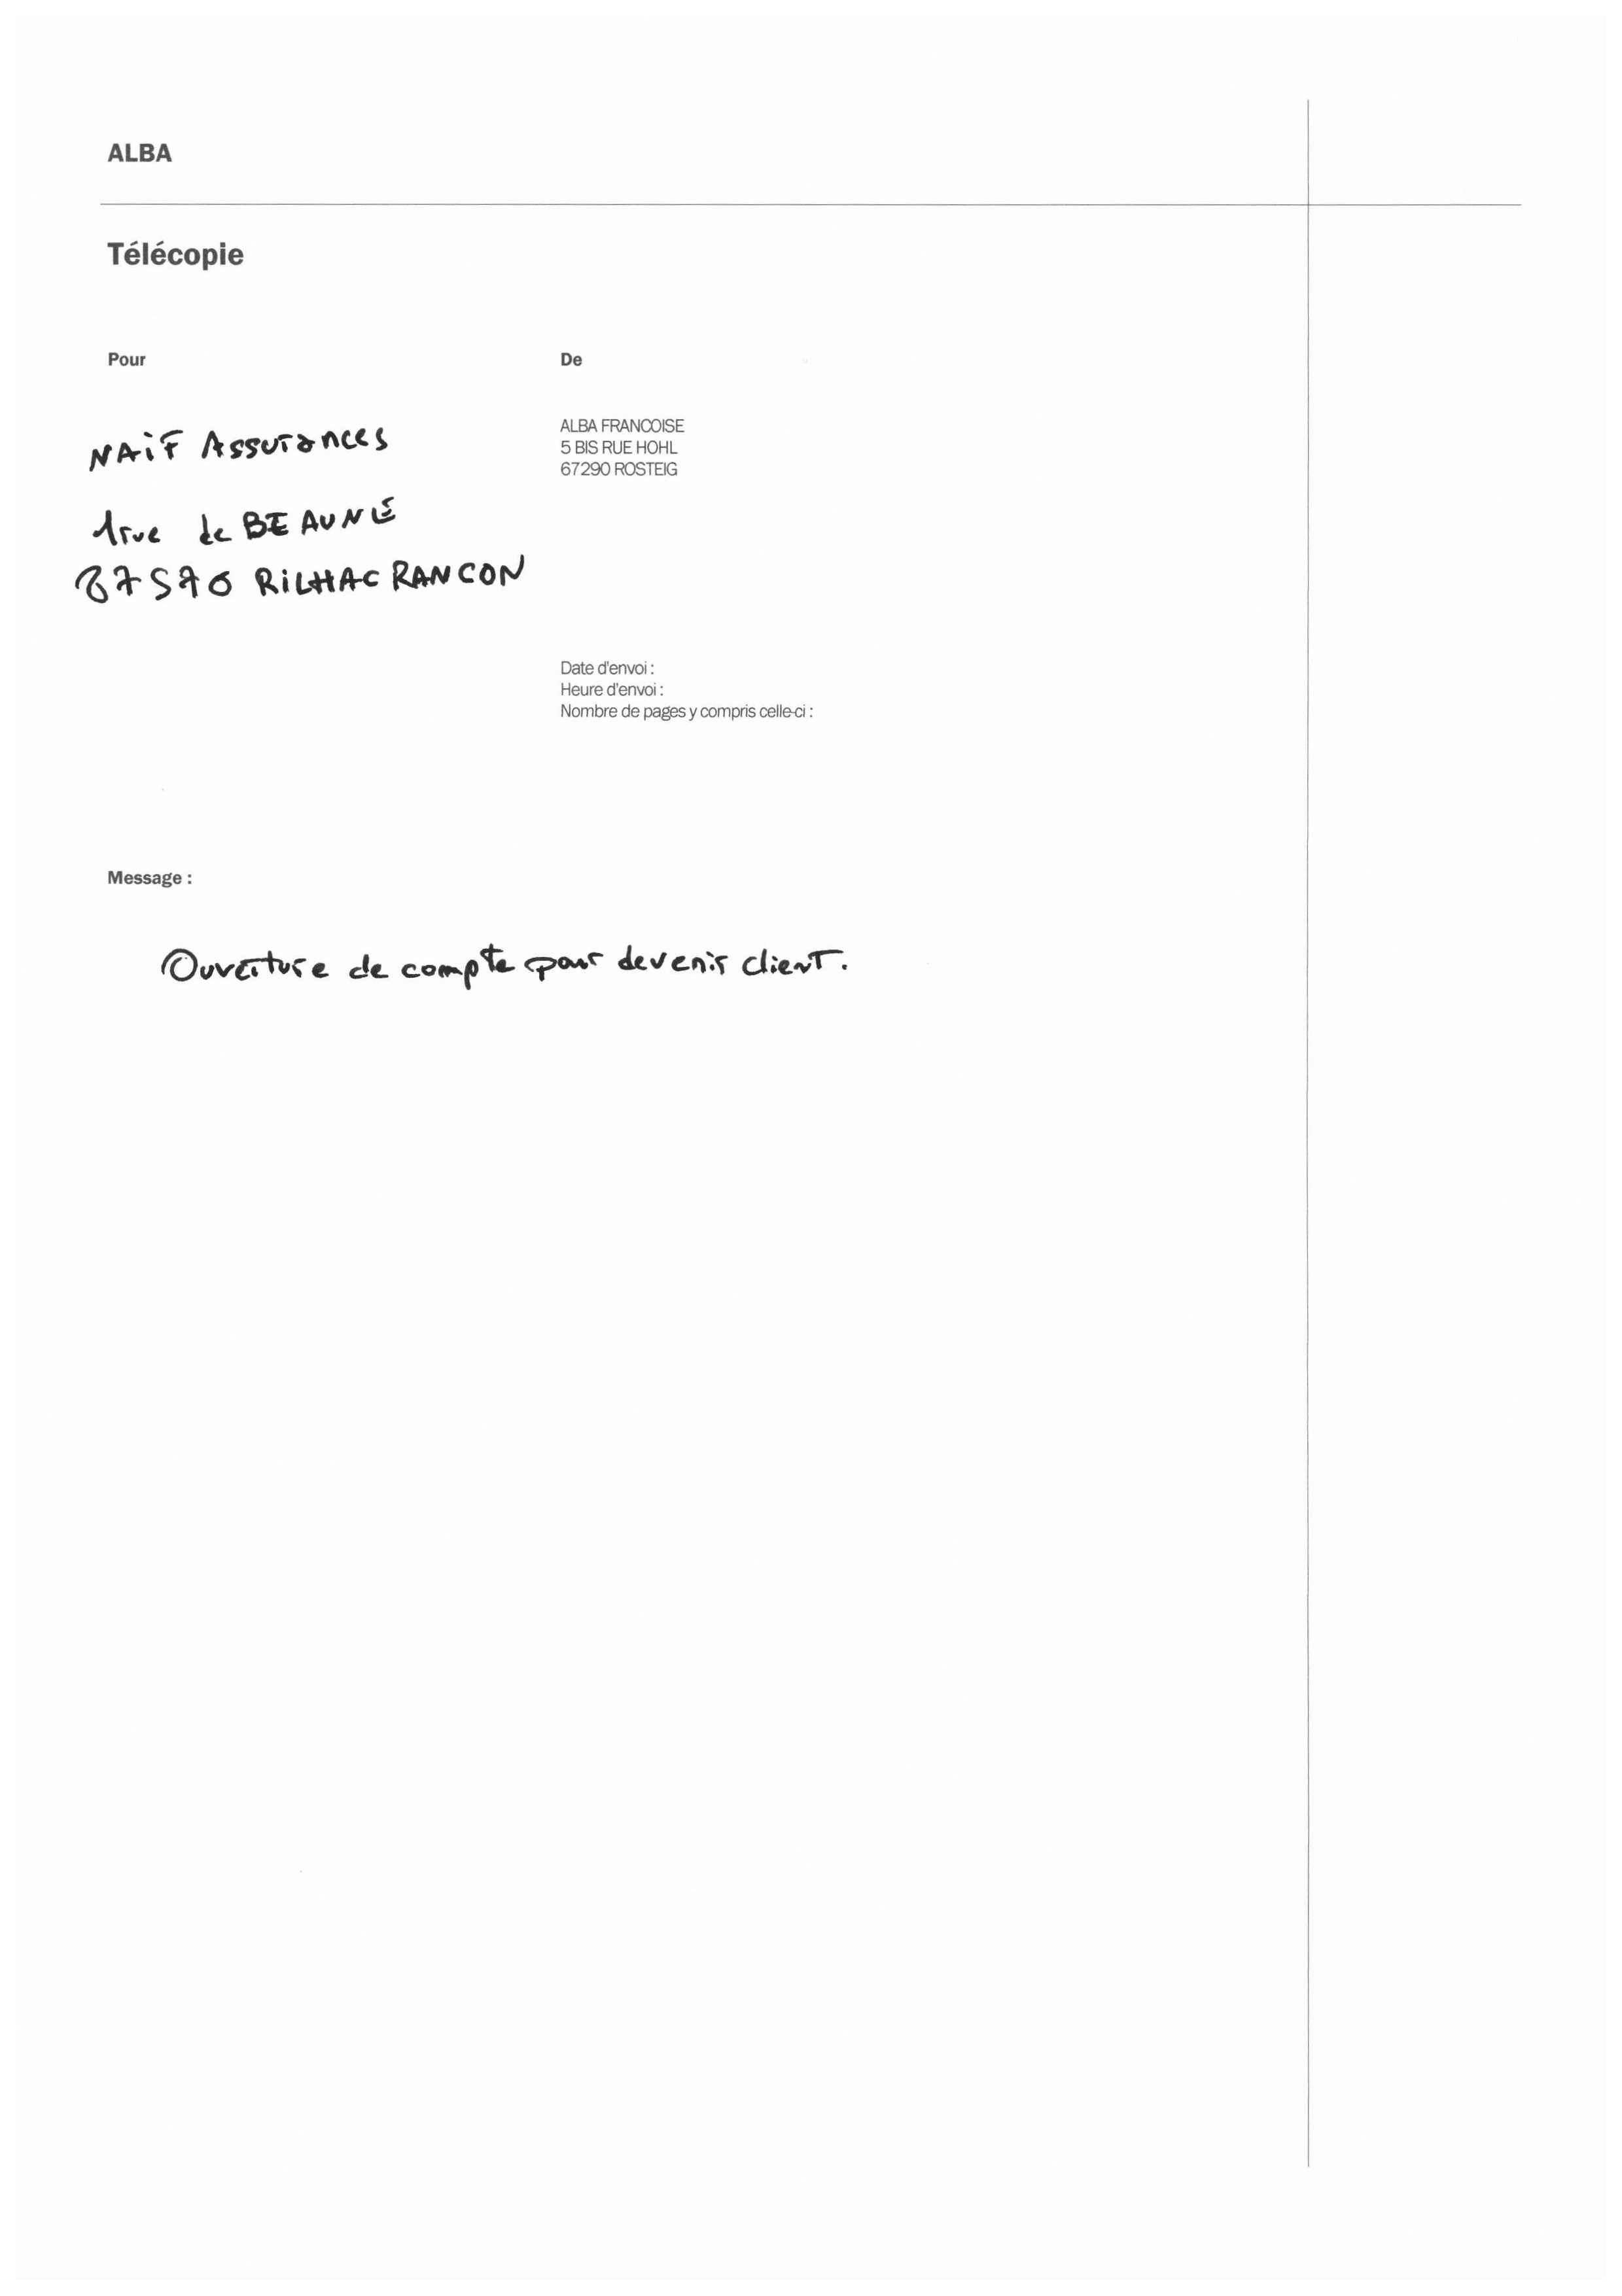 ALBA
Télécopie
Pour
De
NAiF Assurances
1 rue de BEAUNE
87570 RiLHAC RANCON
ALBA FRANCOISE
5 BIS RUE HOHL
67290 ROSTEIG
Date d'envoi :
Heure d'envoi :
Nombre de pages y compris celle-ci :
Message :
Ouverture de compte pour devenir client.